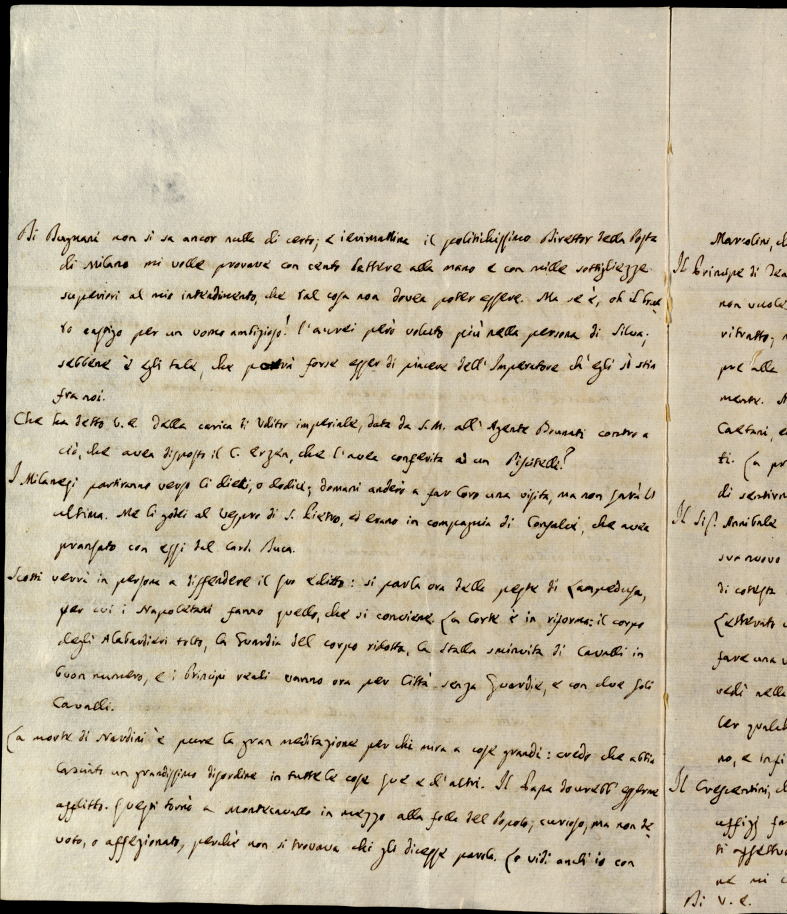 Di Bugnani non si sa ancor nulla di certo; e iermattina il politichissimo Director della Posta
di Milano mi volle provare con cento lettere alla mano e con mille sottigliezze
superiori al mio intendimento, che tal cosa non dovea poter essere. Ma se è, oh
gastigo per un uomo ambizioso! l'aurei però voluto più nella persona di Silva;
sebbene è egli tale, che potrà forse esser di piacere dell'Imperatore ch'egli si stia
fra noi.
Che ha detto V.E. della carica di Uditor imperiale, data da S.M. all'Agente Brunati contro a
ciò, che avea disposto il C. Erzan, che l'avea conferita ad un Pistelli?
I Milanesi partiranno verso li dieci, o dodici; domani anderò a far loro una visita, ma non sarà l'
ultima. Me li godei al vespro di S. Pietro, ed erano in compagnia di Consalvi, che avea
pransato con essi dal Card. Duca.
Scotti verrà in persona a diffendere il suo editto: si parla ora della peste di Lampedusa,
per cui i Napoletani fanno quello, che si conviene. La Corte è in riforma: il corpo
degli Alabardieri tolto, la Guardia del corpo ridotta, la stalla sminuita di Cavalli in
buon numero, e i Principi reali vanno ora per Città senza Guardie, e con due soli
Cavalli.
La morte di Nardini è pure la gran meditazione per chi mira a cose grandi: credo che abbia
lasciato un grandissimo disordine in tutte le cose sue e d'altri. Il Papa dovrebb'esserne
afflitto. Questi tornò a Montecavallo in mezzo alla folla del Popolo; curioso, ma non de-
voto, o affezionato, perchè non si trovava chi gli dicesse parola. Lo vidi anch'io con
Marcolini, ch
Il Principe di
non vuole
ritratto;
pre alle
mente.
Caetani, e
ti. La pr
di sentirn
Il Sig. Annibale
suo nuovo
di cotesta
fare una v
vedi nella
ler qualch
no, e
Il Crescentini, ch
ne mi
Di V.E.